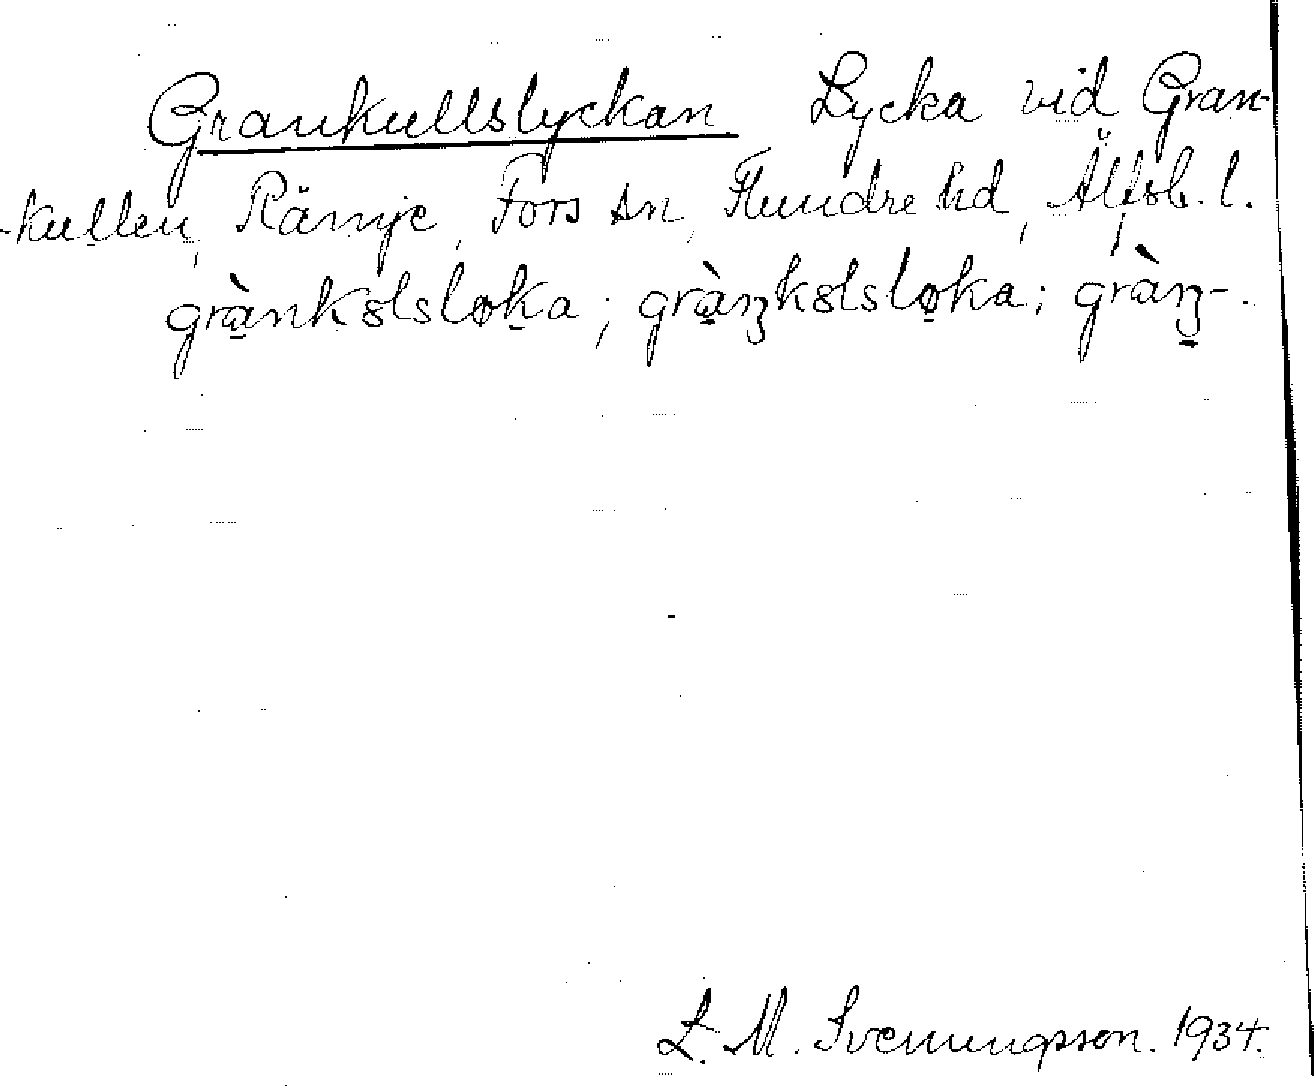 Grankullslyckan Lycka vid Gran-
-kullen, Rämje, Fors sn, Flundre hd, Älfsb. l.
grànkꞷlsløka; gràŋkꞷlsløka; gràŋ-.
L. M. Svenungsson. 1934.